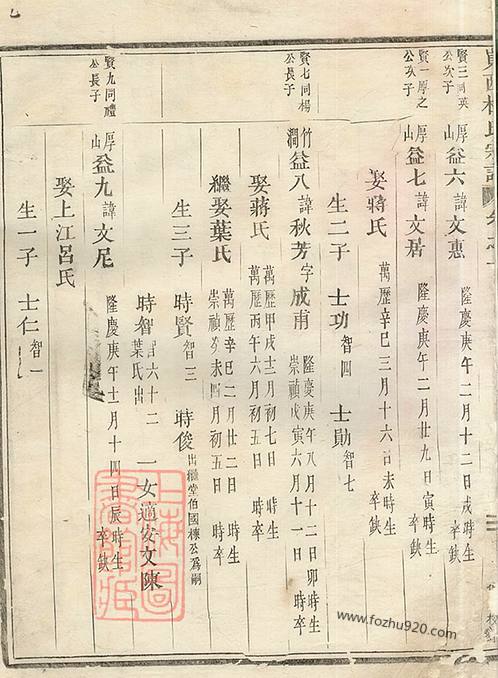 賢三同英公次子
厚山益六諱文惠 隆慶庚午二月十二日戌時生 卒缺
賢一厚之公次子
厚山益七諱文居 隆慶庚午二月廿九日寅時生 卒缺
娶蔣氏 萬歷辛巳三月十六日未時生 卒缺
生二子 士功智四 士勛智七
賢七同楊公長子
竹澗益八諱秋芳字成甫 隆慶庚午八月十二日卯時生 崇禎戊寅六月十一日 時卒
娶蔣氏 萬歷甲戌十二月初七日 時生 萬歷丙午六月初五日 時卒
繼娶葉氏 萬歷辛巳二月廿二日 時生 崇禎 未四月初五日 時卒
生三子 時賢智三 時俊出繼堂伯國棟公爲嗣
時智 六十二葉氏出 一女適安文陳
賢九同禮公長子
厚山益九諱文尼 隆慶庚午十一月十四日辰時生 卒缺
娶上江呂氏
生一子 士仁智一
上海圖書館藏
www.fozhu920.com